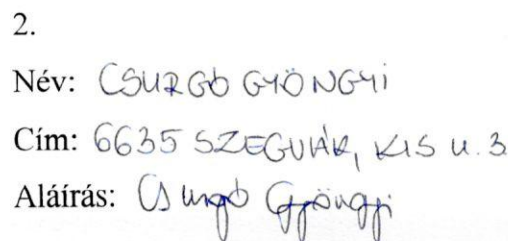 2.
Név: CSURGÓ GYÖNGYI
Cím: 6635 SZEGVÁR, KIS U. 3
Aláírás: Csurgó Gyöngyi